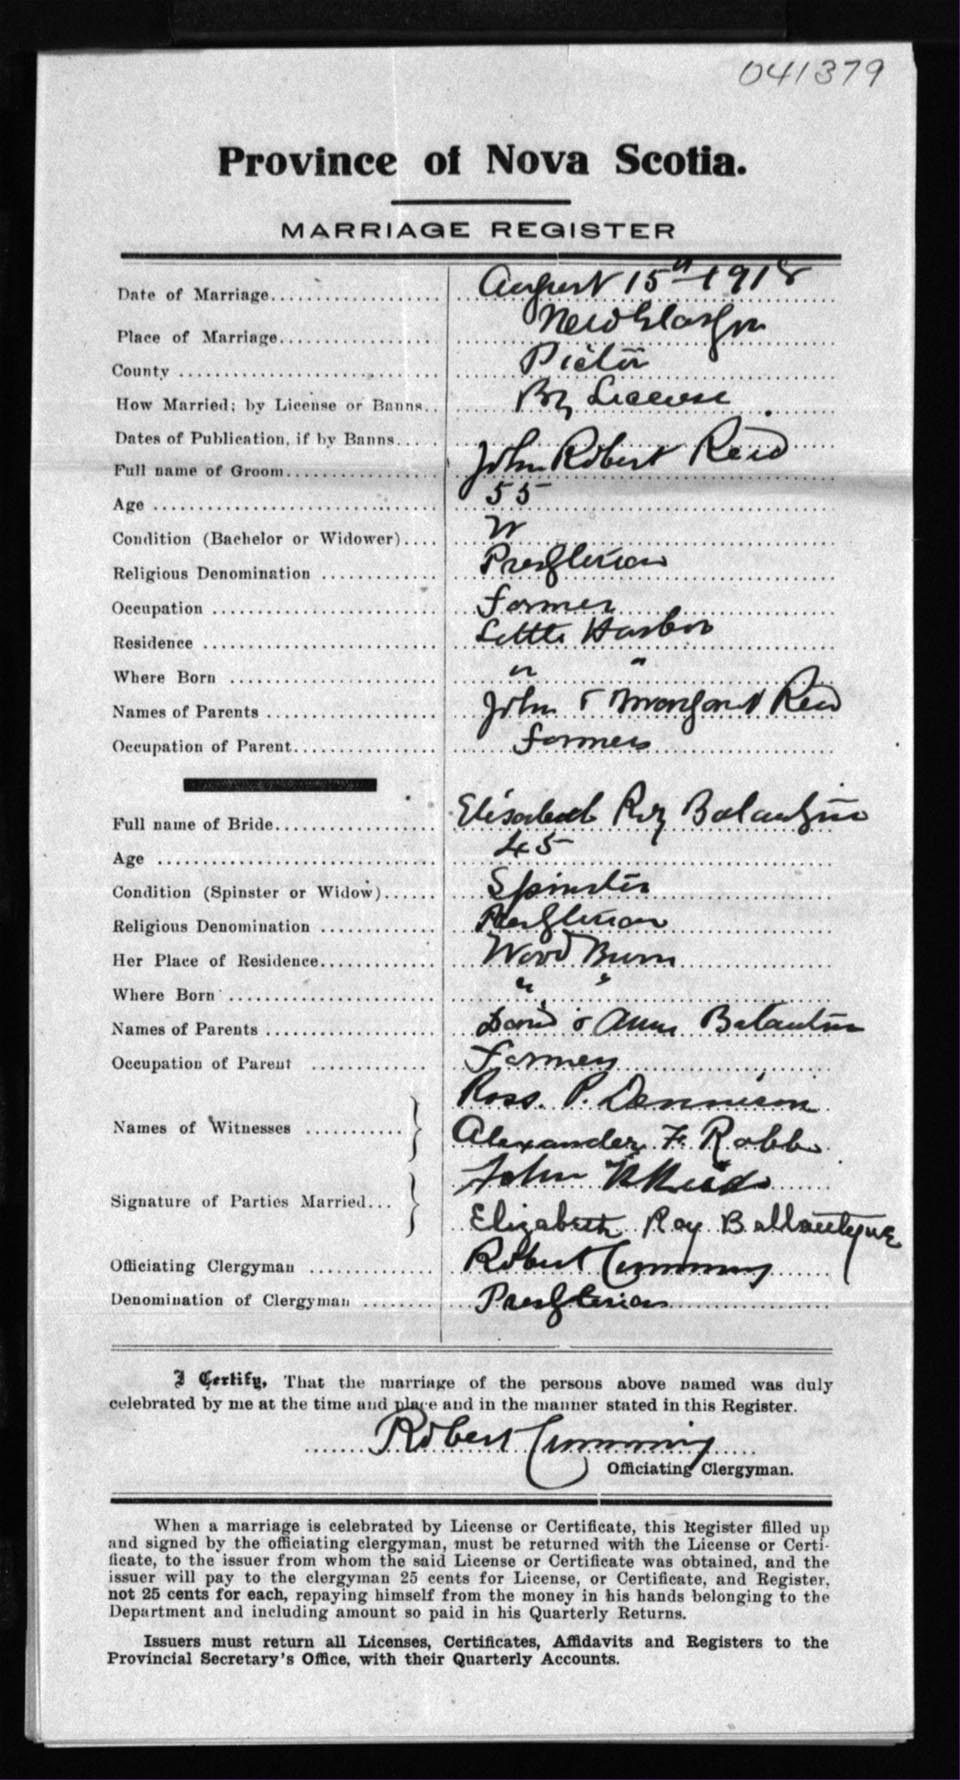 041379
Province of Nova Scotia.
MARRIAGE REGISTER
Date of Marriage August 15th 1918
Place of Marriage New Glasgow
County Pictou
How Married; by License or Banns By License
Dates of Publication, if by Banns
Full name of Groom John Robert Reid
Age 55
Condition (Bachelor or Widower) W
Religious Denomination Presbyterian
Occupation Farmer
Residence Little Harbor
Where Born " "
Names of Parents John & Margaret Reid
Occupation of Parent Farmers
Full name of Bride Elisabeth Roy Balantyne
Age 45
Condition (Spinster or Widow) Spinster
Religious Denomination Presbyterian
Her Place of Residence Wood Burn
Where Born " "
Names of Parents David & Annie
Occupation of Parent Farmer
Names of Witnesses Ross. P. Dennison
Alexander F. Robb
Signature of Parties Married John R Reid
Elizabeth Roy Ballantyne
Officiating Clergyman Robert Cumming
Denomination of Clergyman Presbyterian
I Certify, That the marriage of the persons above named was duly
celebrated by me at the time and place and in the manner stated in this Register.
Robert Cumming
Officiating Clergyman.
When a marriage is celebrated by License or Certificate, this Register filled up
and signed by the officiating clergyman, must be returned with the License or Certi-
ficate, to the issuer from whom the said License or Certificate was obtained, and the
issuer will pay to the clergyman 25 cents for License, or Certificate, and Register,
not 25 cents for each, repaying himself from the money in his hands belonging to the
Department and including amount so paid in his Quarterly Returns.
Issuers must return all Licenses, Certificates, Affidavits and Registers to the
Provincial Secretary's Office, with their Quarterly Accounts.